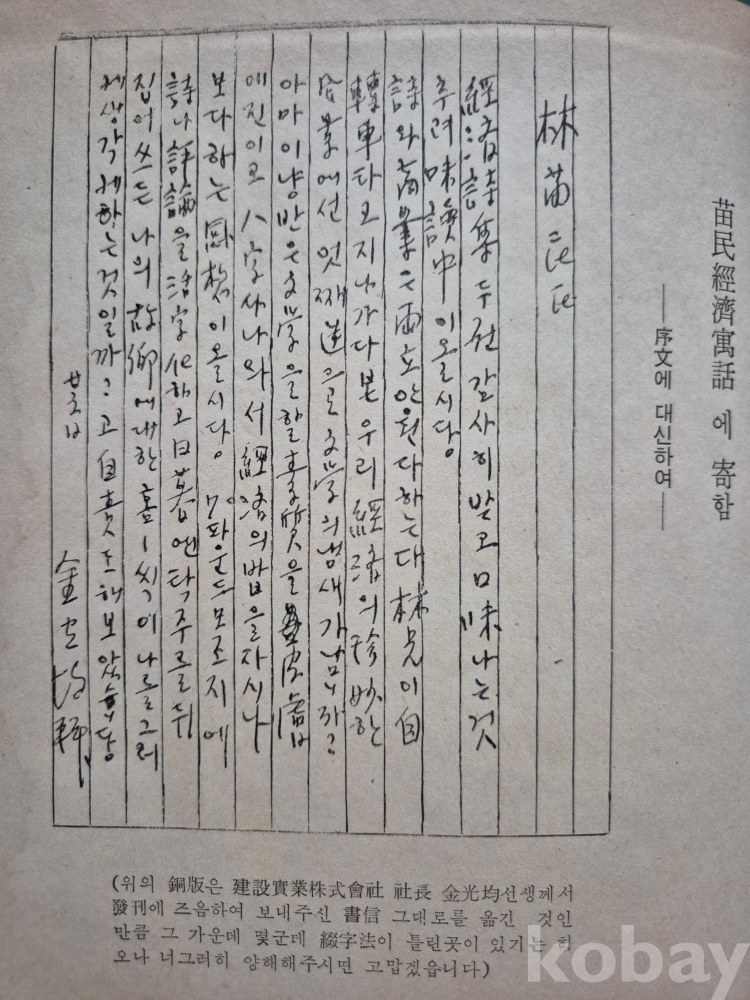 苗民經濟寓話에 寄함
──序文에 대신하여──
林苗民 氏
經濟詩集 두권 감사히 받고 口味나는것
추려 味讀中이올시다
詩와 商業은 兩立 안된다하는대 林兄이 自
轉車타고 지나가다본 우리 經濟의 珍妙한
風景에선 엇째 더 文學의냄새가남니까?
아마 이냥반은 文学을 할 素質을
에진이고 八字 사나와서 經濟의밥을자시나
보다하는 이올시다
詩나 評論을 活字化하고 日暮엔 탁주를뒤
집어쓰든 나의 故鄕에대한 홈ㅣ씩이 나를그러
케생각게하는것일까? 고 自責도해보았습니다
金光均
(위의 銅版은 建設實業株式會社 社長 金光均선생께서
發刊에 즈음하여 보내주신 書信 그대로를 옮긴 것인
만큼 그 가운데 몇군데 綴字法이 틀린곳이 있기는 하
오나 너그러히 양해해주시면 고맙겠읍니다)
kobay